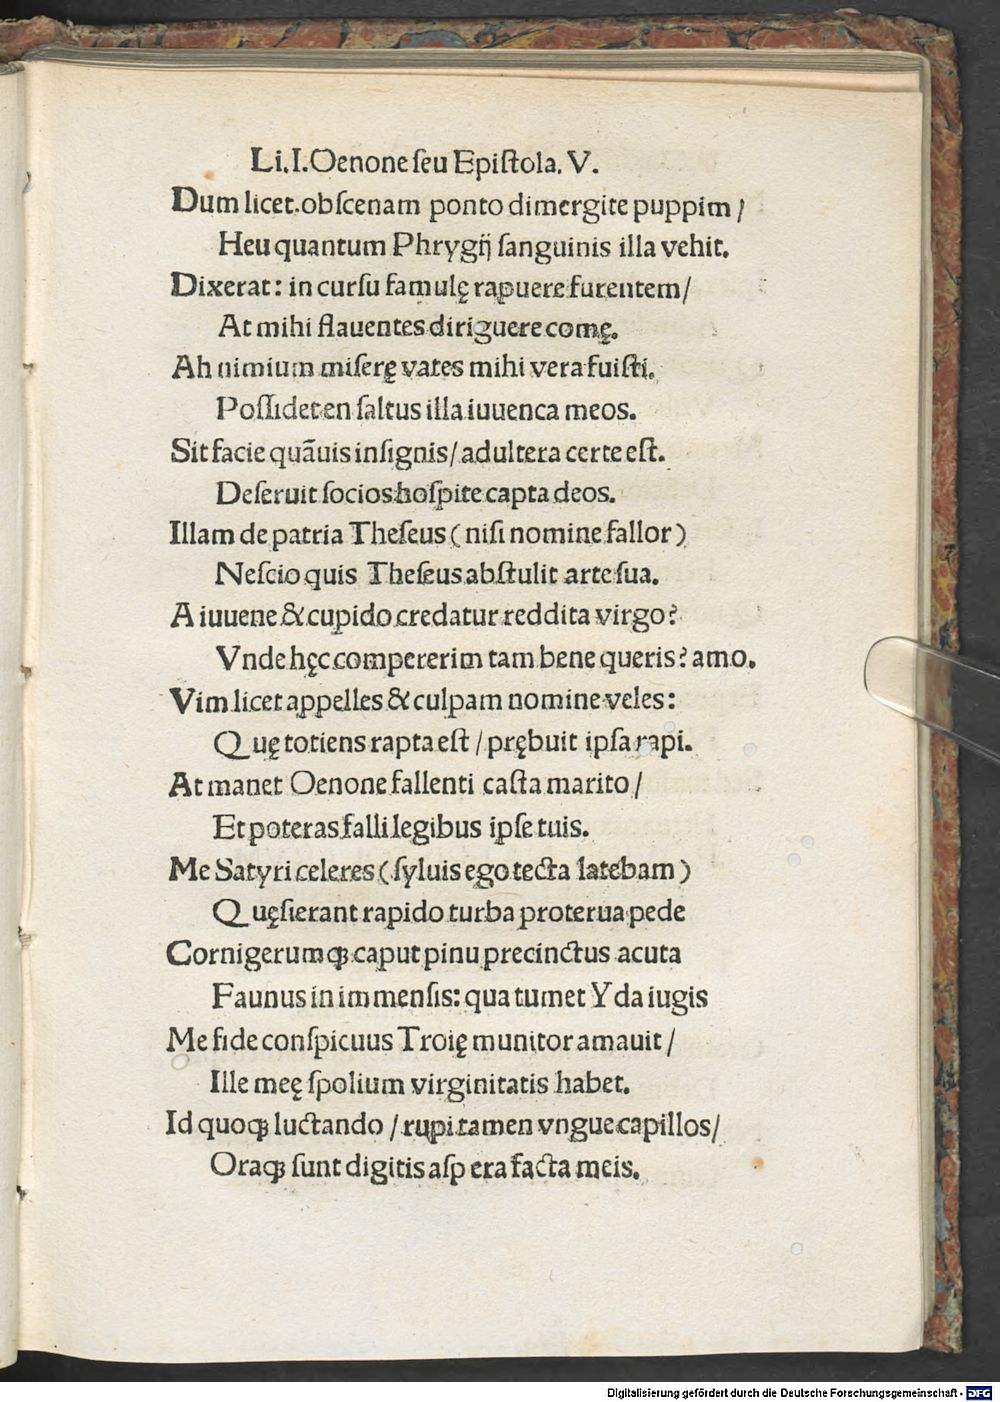 Li. I. Oenone seu Epiſtola. V.
Dum licet. obſcenam ponto dimergite puppim /
Heu quantum Phrygij ſanguinis illa vehit.
Dixerat: in curſu famulę rapuere furentem /
At mihi flauentes diriguere comę.
Ah nimium miſerę vates mihi vera fuiſti.
Poſſidet en ſaltus illa iuuenca meos.
Sit facie quāuis inſignis / adultera certe eſt.
Deſeruit ſocios hoſpite capta deos.
Illam de patria Theſeus (niſi nomine fallor)
Neſcio quis Theſeus abſtulit arte ſua.
A iuuene & cupido credatur reddita virgo?
Vnde hęc compererim tam bene queris? amo.
Vim licet appelles & culpam nomine veles:
Quę totiens rapta eſt / prębuit ipſa rapi.
At manet Oenone fallenti caſta marito /
Et poteras falli legibus ipſe tuis.
Me Satyri celeres (ſyluis ego tecta latebam)
Quęſierant rapido turba proterua pede
Cornigerumqꝫ caput pinu precinctus acuta
Faunus in immenſis: qua tumet Yda iugis
Me fide conſpicuus Troię munitor amauit /
Ille meę ſpolium virginitatis habet.
Id quoqꝫ luctando / rupi tamen vngue capillos /
Oraqꝫ ſunt digitis aſpera facta meis.
Digitalisierung gefördert durch die Deutsche Forschungsgemeinschaft - DFG